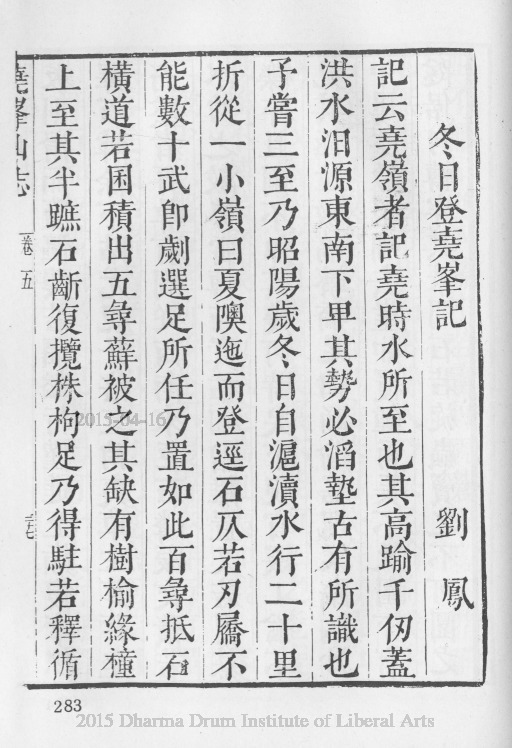 冬日登堯峯記　劉鳳
記云堯嶺者記堯時水所至也其高踰千仞蓋
洪水汨源東南下甲其勢必滔墊古有所識也
予嘗三至乃昭陽歲冬日自滬瀆水行二十里
折從一小嶺曰夏隩迤而登逕石仄若刃屩不
能數十武卽劌選足所任乃置如此百尋抵石
橫道若囷積出五尋蘚被之其缺有樹榆緣橦
上至其半蹠石齗復攬株枸足乃得駐若釋循
堯峯山志　卷五
2015-04-16
283
2015 Dharma Drum Institute of Liberal Arts